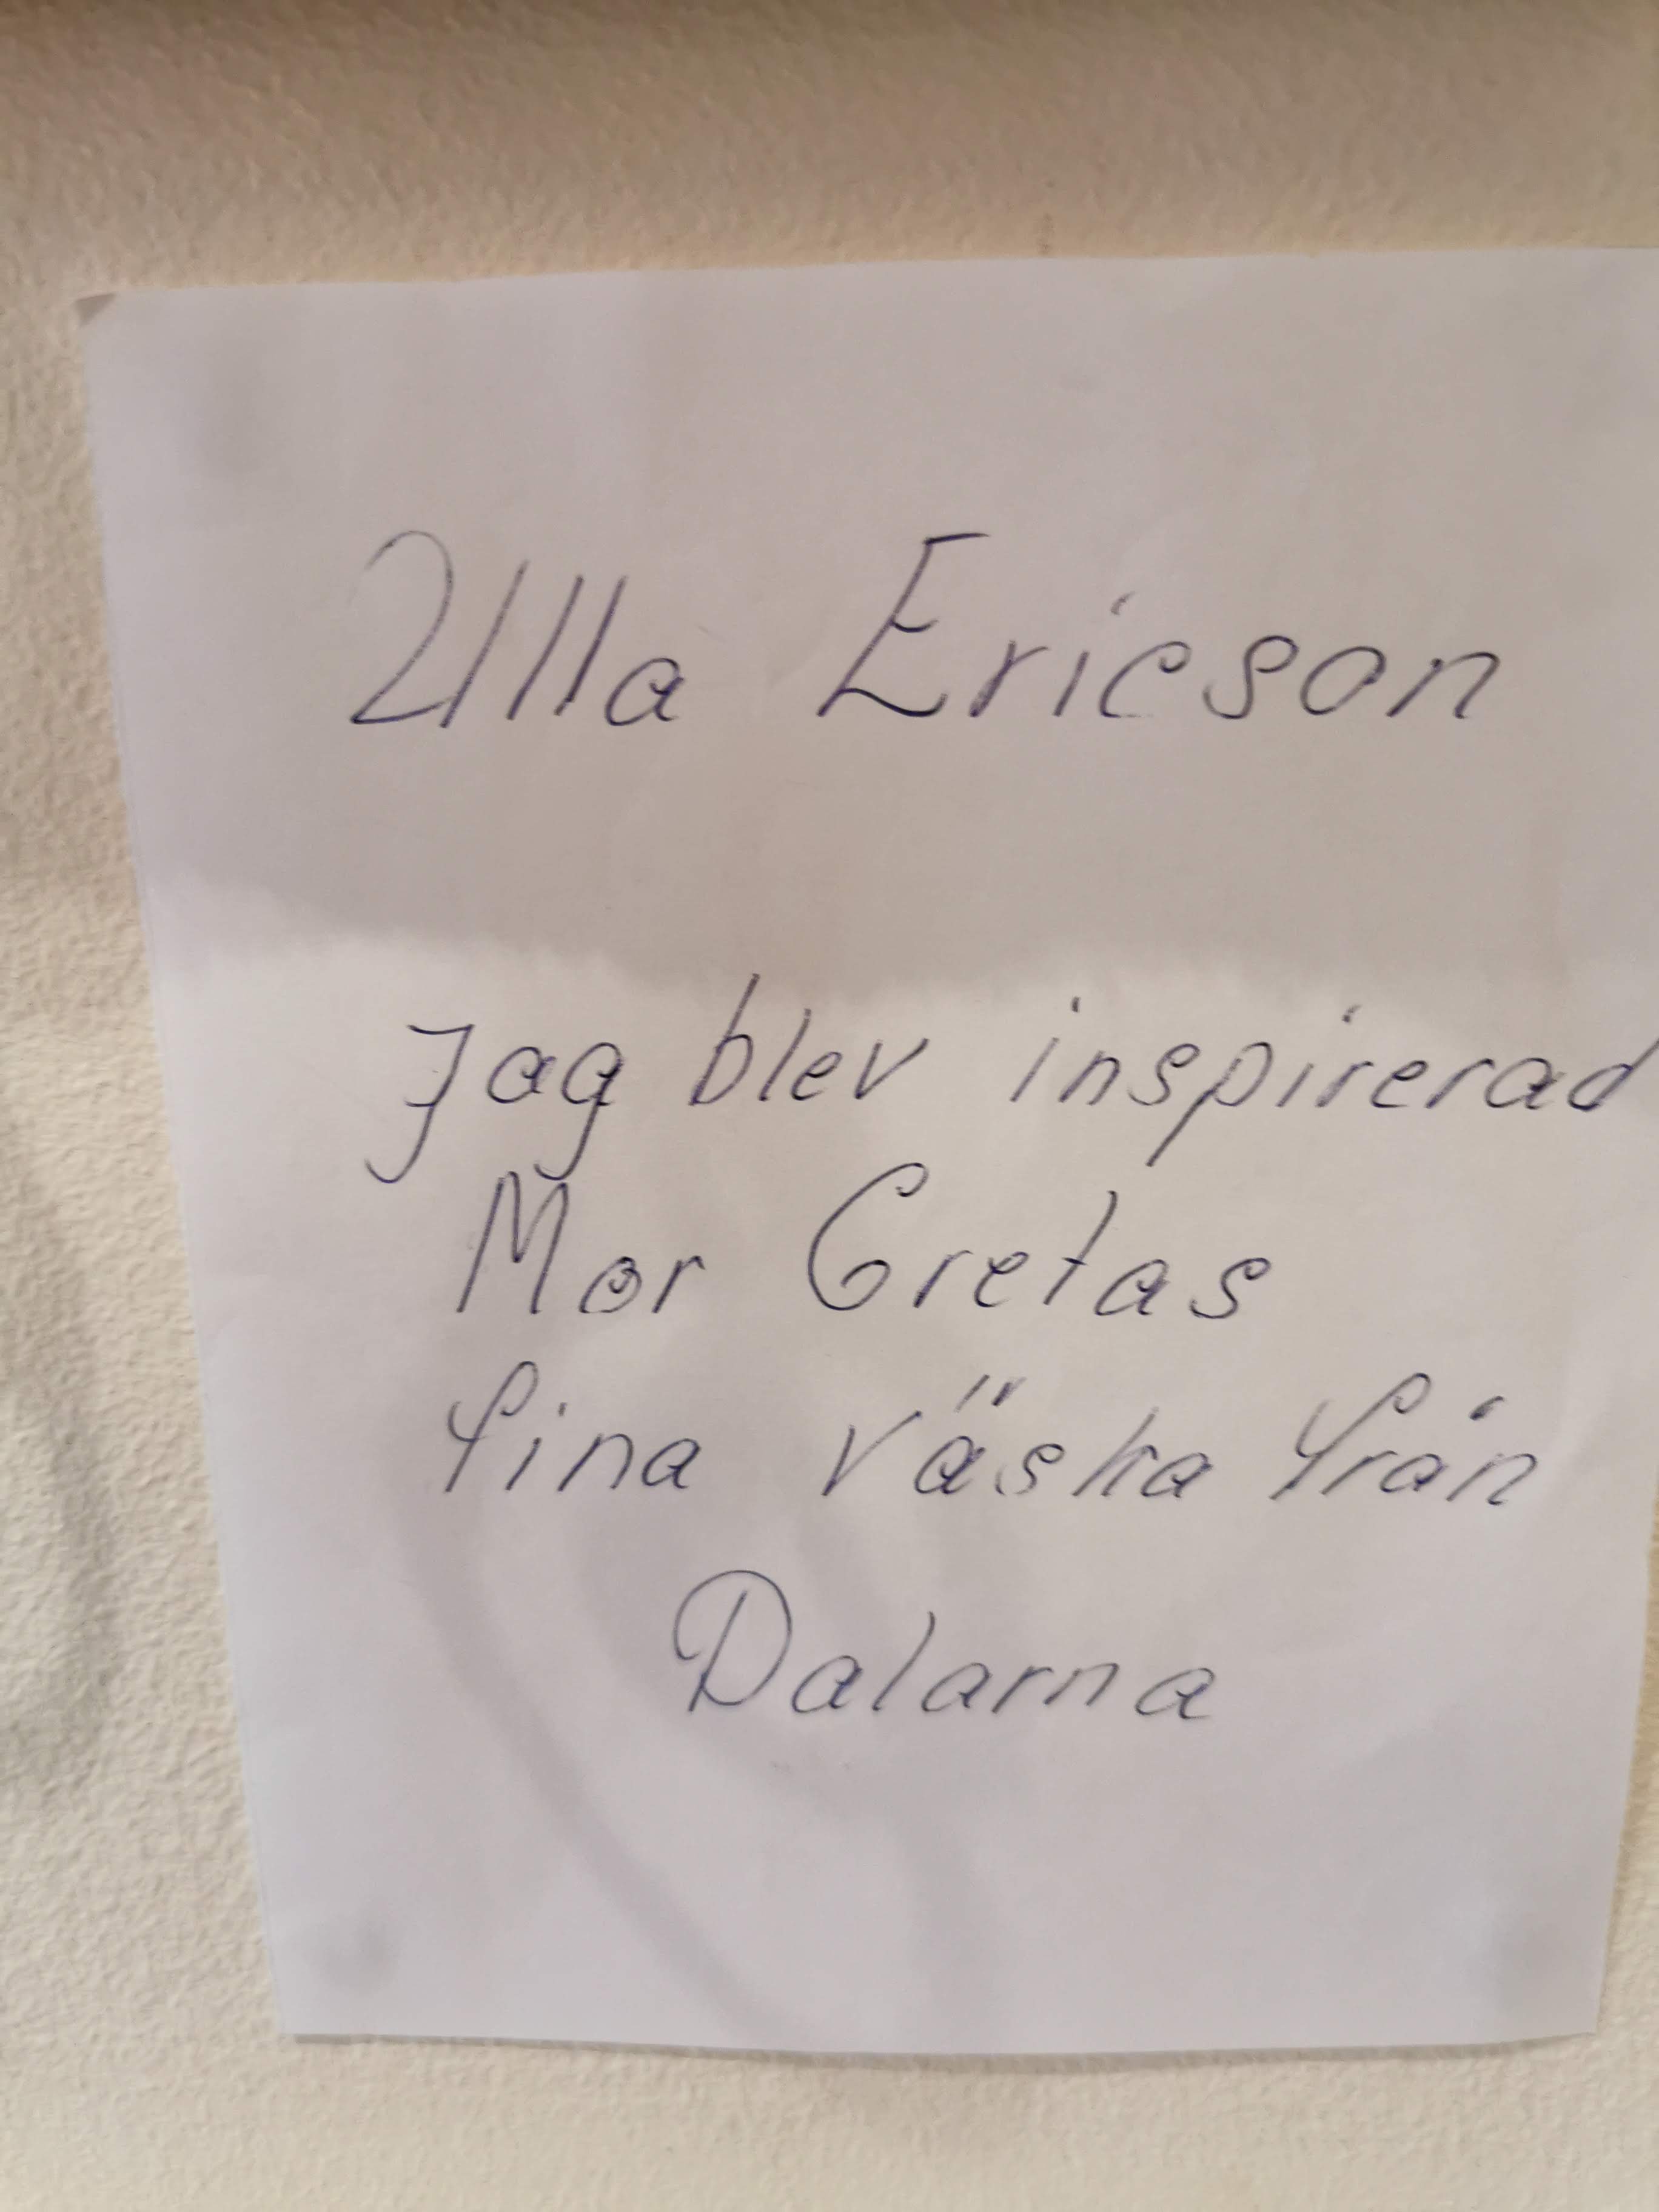 Ulla Ericson
Jag blev inspirerad
Mor Gretas
fina väska från
Dalarna